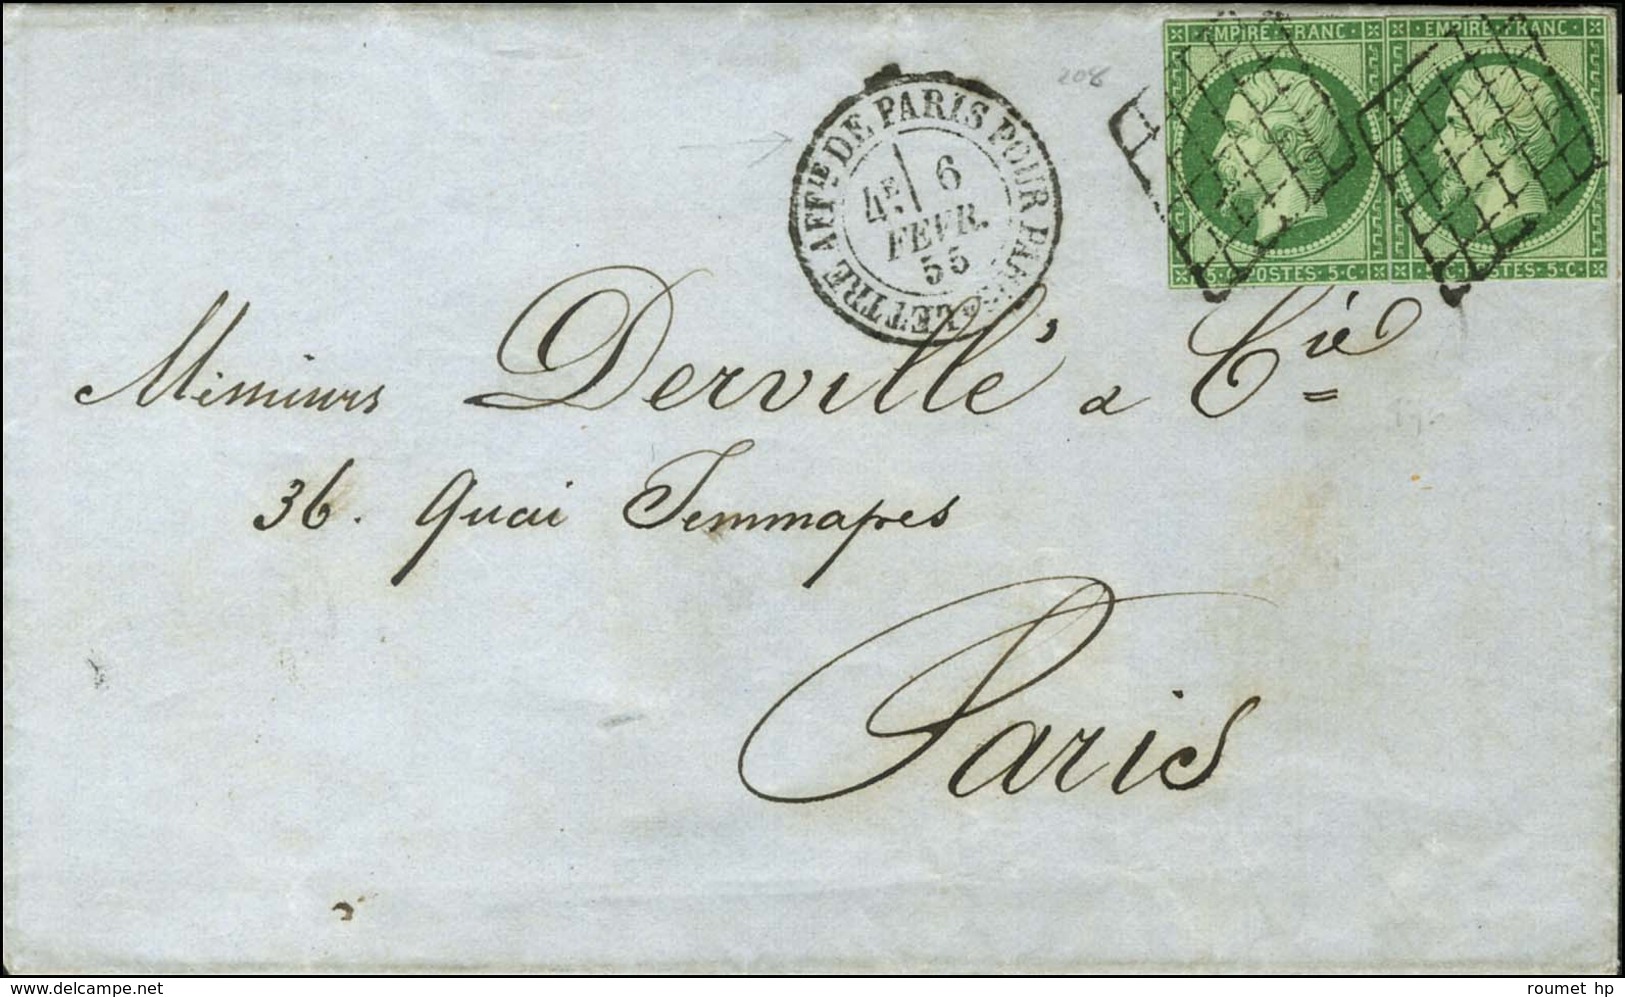 208
EMPIRE·FRANC·
EMPIRE·FRANC·
5·C·POSTES·5·C·
5·C·POSTES·5·C·
LETTRE AFFIE DE PARIS POUR PARIS
4E 6
FEVR.
55
Messieurs Dervillé & Cie
36. Quai Jemmapes
Paris
www.delcampe.net
roumet hp